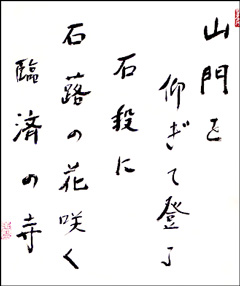 山門を
仰ぎて登る
石段に
石蕗の花咲く
臨済の寺